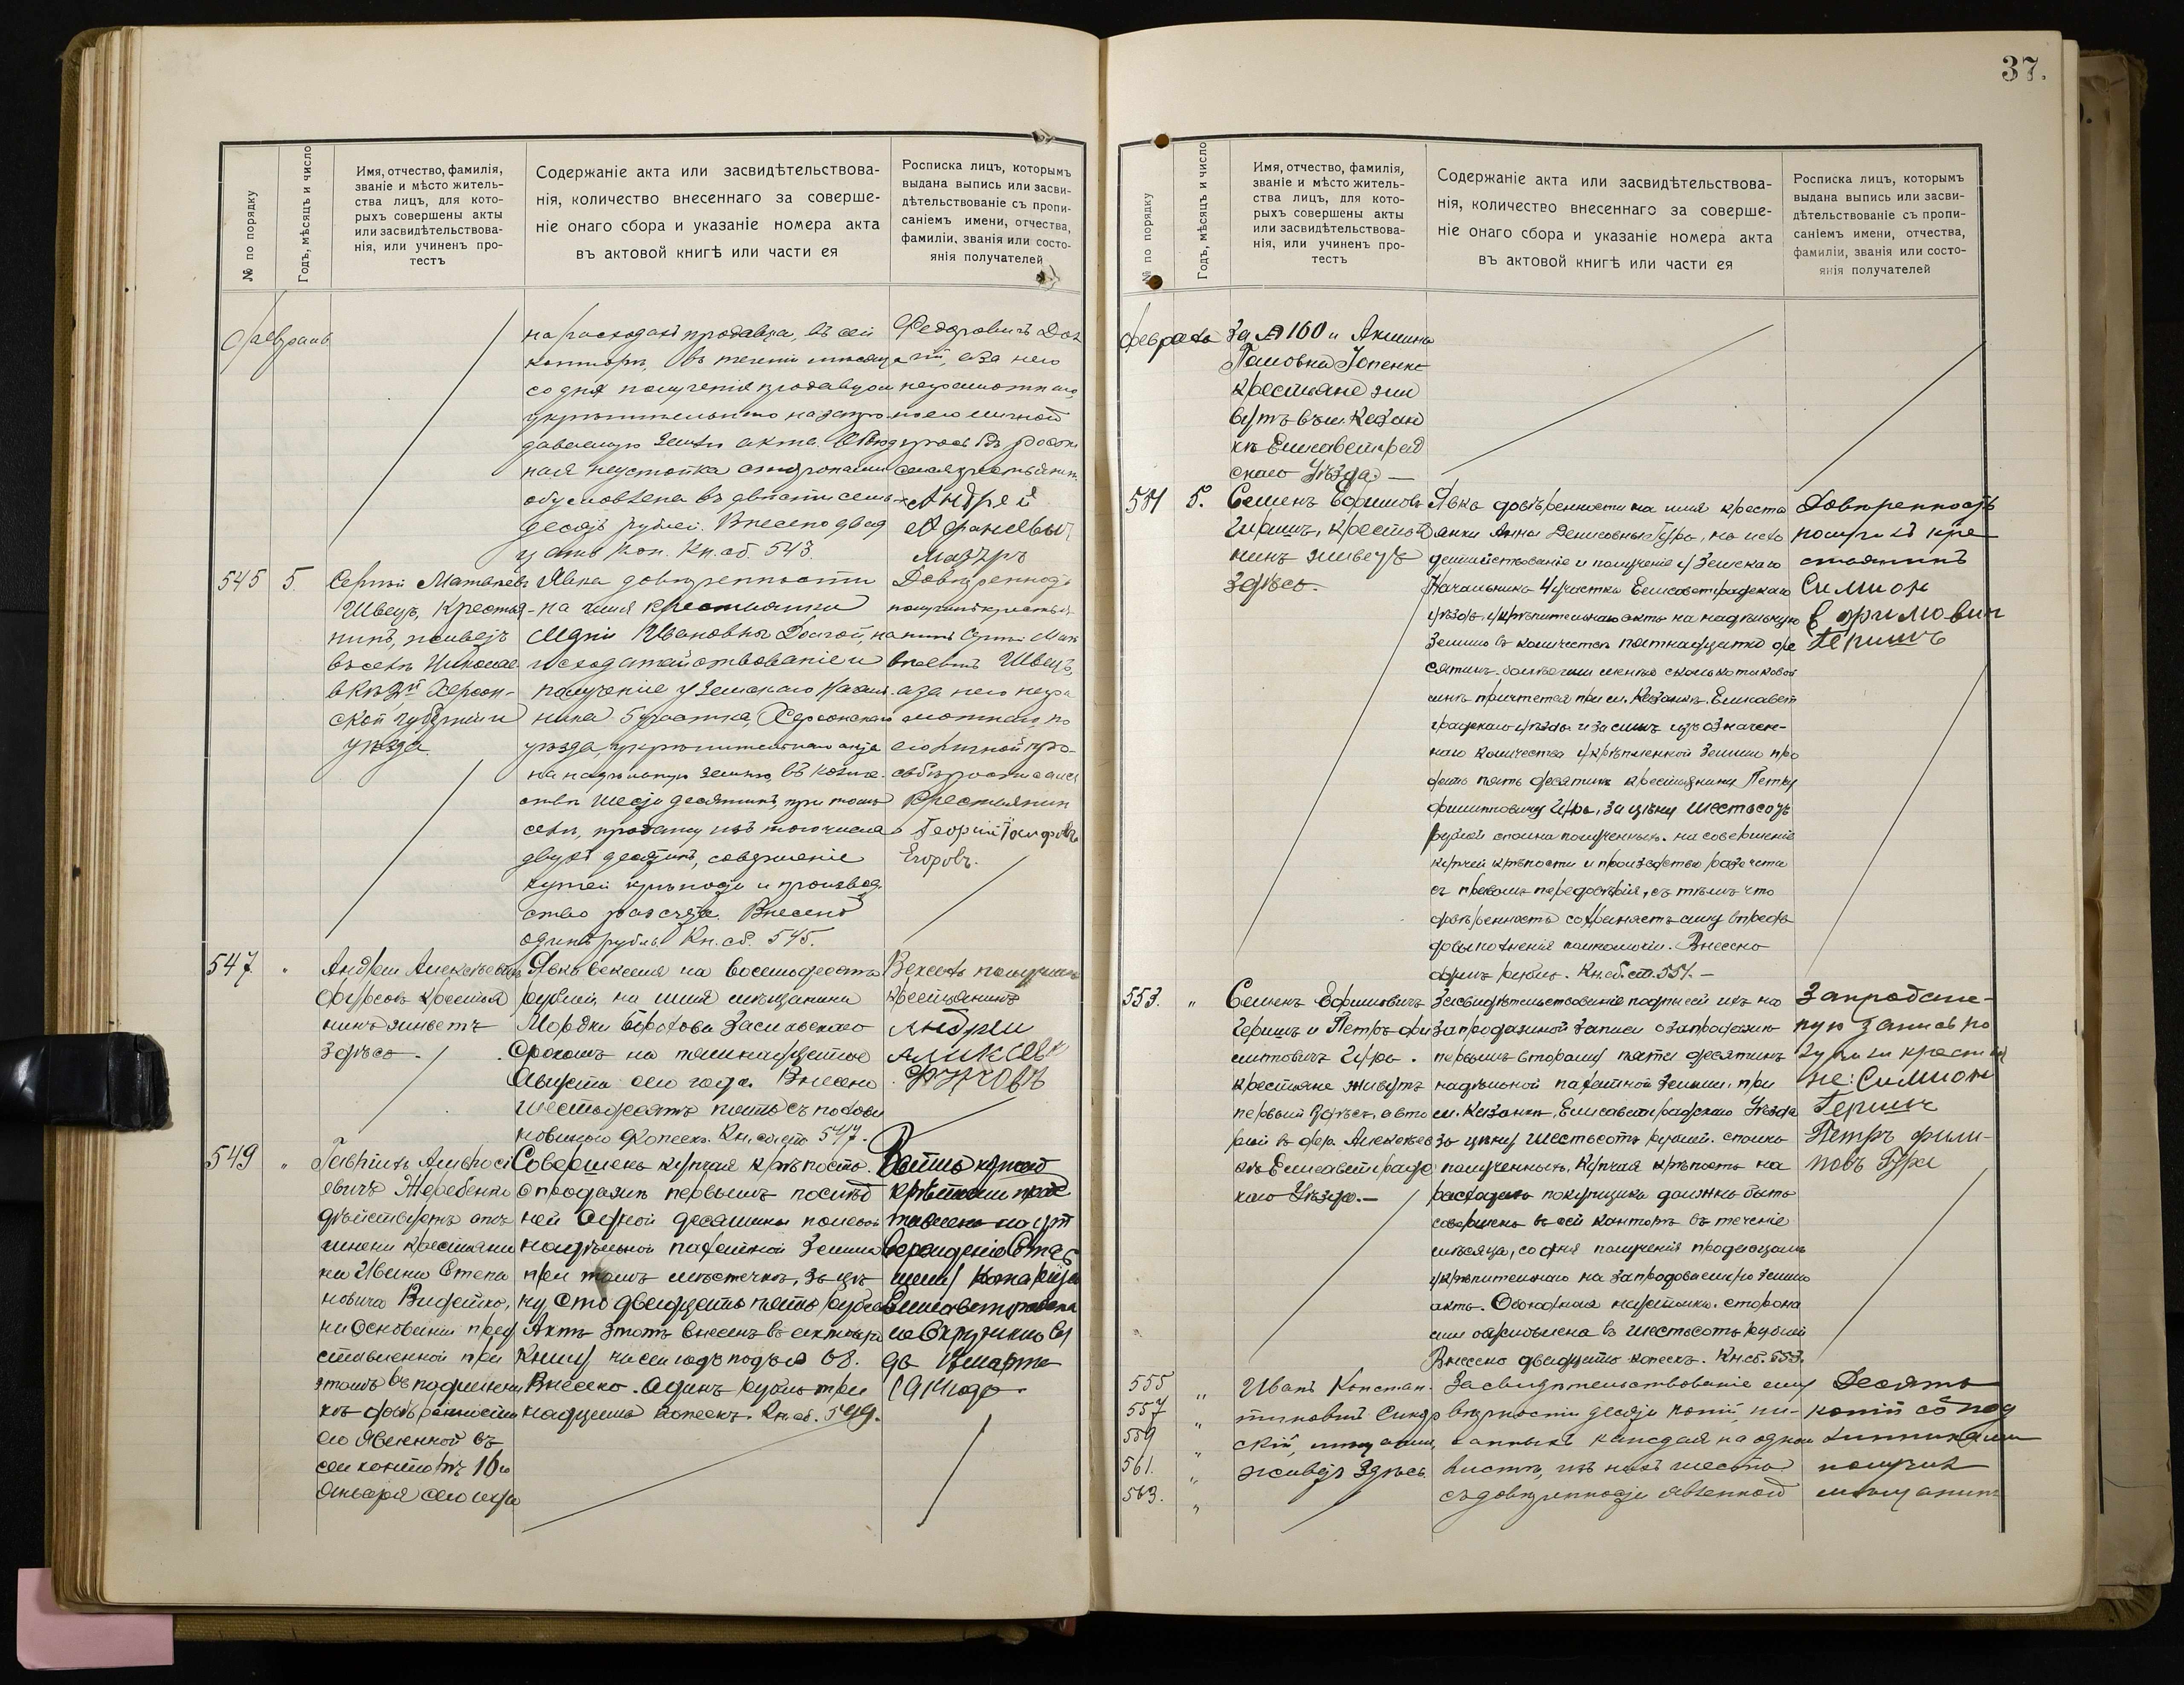 37.
№ по порядку
Годъ, мѣсяцъ и число
Имя, отчество, фамилія,
званіе и мѣсто житель-
ства лицъ, для кото-
рыхъ совершены акты
или засвидѣтельствова-
нія, или учиненъ про-
тестъ
Содержаніе акта или засвидѣтельствова-
нія, количество внесеннаго за соверше-
ніе онаго сбора и указаніе номера акта
въ актовой книгѣ или части ея
Росписка лицъ, которымъ
выдана выпись или засви-
дѣтельствованіе съ пропи-
саніемъ имени, отчества,
фамиліи, званія или состо-
янія получателей
Февраль
на расходахъ продавца, въ сей
конторѣ, въ теченіи мѣсяца
со дня полученія продавцомъ
укрѣпительнаго на запро-
даваемую землю акта. Обоюд
ная неустойка сторонами
обусловлена въ двѣсти семь-
десять рублей. Внесено двад
цать коп. Кн. сб. 543.
Федоровичъ
а за него
неграмотнаго
по его личной
просьбѣ росп
Андрей
Афанасьевъ
Мазуръ
545
5.
Сергѣй Матвѣевъ
Швецъ, Крестья-
нинъ, живетъ
въ селѣ Николае
вкѣ 2й Херсон-
ской губерніи и
уѣзда
Явка довѣренности
на имя крестьянки
Маріи Ивановны Долгой, на
исходатайствованіе и
полученіе у Земскаго Началь-
ника 5 участка, Херсонскаго
уѣзда, укрѣпительнаго акта
на надѣльную землю, въ колич-
ствѣ шести десятинъ, при томъ
селѣ, продажу изъ того числа
двухъ десятинъ, совершеніе
купчей крѣпости и производ-
ство разсчета. Внесенъ
одинъ рубль Кн. сб. 545.
Довѣренность
получилъ крестья-
нинъ Сергѣй Мат
вѣевичъ Швецъ,
а за него негра
мотнаго по
его личной про-
сьбѣ росписался
Крестьянин
Георгій
Егоровъ.
547
"
Андрей Алексѣевичъ
Фурсовъ крестья
нинъ живетъ
здѣсь.
Явка векселя на восемьдесятъ
рублей, на имя мѣщанина
Мордки Заславскаго
срокомъ на пятнадцатое
Августа сего года. Внесено
шестьдесятъ пять съ полови
новиною копеекъ. Кн. сб. ст. 547.
Вексель получилъ
крестьянинъ
Андрей
Алексѣев
Фурсовъ
549
"
Гавріилъ Амвросі
евичъ Жеребенко
дѣйствуетъ отъ
имени крестьяни
на Ивана Степа
новича Видейко,
на основаніи пред
ставленной при
этомъ въ подлинни
кѣ довѣренности
его явленной въ
сей конторѣ 16го
Января сего года
Совершена купчая крѣпость
о продажѣ первымъ послѣд
ней одной десятины полевой
надѣльной пахатной земли
при томъ мѣстечкѣ, за цѣ
ну сто двадцать пять рублей
Актъ этотъ внесенъ въ актовую
книгу на сей годъ подъ № 68.
Внесено. Одинъ рубль три
надцать копеекъ. Кн. сб. 549.
Выпись купчей
крѣпости пред
ставлена на ут
вержденіе Стар
шему Нотаріусу
Елисаветградска
го Окружнаго Су
да Марта
1914 года
Февраля
За № 160 и Акилина
Павловна
крестьяне жи
вутъ въ м. Казан
кѣ Елисаветград
скаго Уѣзда. —
551
5.
Семенъ Ефимовъ
Геришъ, крестья
нинъ живетъ
здѣсь.
Явка довѣренности на имя кресть
янки Анны Денисовны Гура, на исхо
датайствованіе и полученіе у Земскаго
Начальника 4 участка Елисаветградскаго
уѣзда, укрѣпительнаго акта на надѣльную
землю въ количествѣ пятнадцати де
сятинъ болѣе или менѣе сколько таковой
имъ причтется при м. Казанкѣ Елисавет
градскаго уѣзда и за симъ изъ означен-
наго количества укрѣпленной земли про
дать пять десятинъ крестьянину Петру
Филипповичу Гура, за цѣну шестьсотъ
рублей сполна полученныхъ. на совершеніе
купчей крѣпости и производство разсчета
съ правомъ передовѣрія, съ тѣмъ что
довѣренность сохраняетъ силу впредь
до выполненія полномочія. Внесено
одинъ рубль. Кн. сб. ст. 551. —
Довѣренность
получилъ кре
стьянинъ
Симион
Ефимович
Геришъ
553.
"
Семенъ Ефимовичъ
Геришъ и Петръ Фи
липповичъ Гура.
крестьяне живутъ
первый здѣсь, а вто
рой въ дер. Алексѣев
кѣ Елисаветградс
каго Уѣзда. —
Засвидѣтельствованіе подписей ихъ на
запродажной записи о запродажѣ
первымъ второму пяти десятинъ
надѣльной пахатной земли, при
м. Казанкѣ, Елисаветградскаго Уѣзда
за цѣну шестьсотъ рублей. сполна
полученныхъ, купчая крѣпость на
расходахъ покупщика должна быть
совершена въ сей конторѣ въ теченіе
мѣсяца, со дня полученія продавцомъ
укрѣпительнаго на запродаваемую землю
акта. Обоюдная неустойка. сторона
ми обусловлена въ шестьсотъ рублей
Внесено двадцать копеекъ. Кн. сб. 553.
Запродаже-
ную запись по
лучили крестья
не: Симион
Геришъ
Петръ Фили-
повъ Гура
555
557
559
561.
563.
"
"
"
"
"
Иванъ Констан-
тиновичъ
скій, мѣщанинъ,
живетъ здѣсь
Засвидѣтельствованіе ему
вѣрности десяти копій, пи-
санныхъ каждая на одномъ
листѣ, изъ нихъ шесть
съ довѣренности явленной
Десять
копій съ под
линниками
получилъ
мѣщанинъ